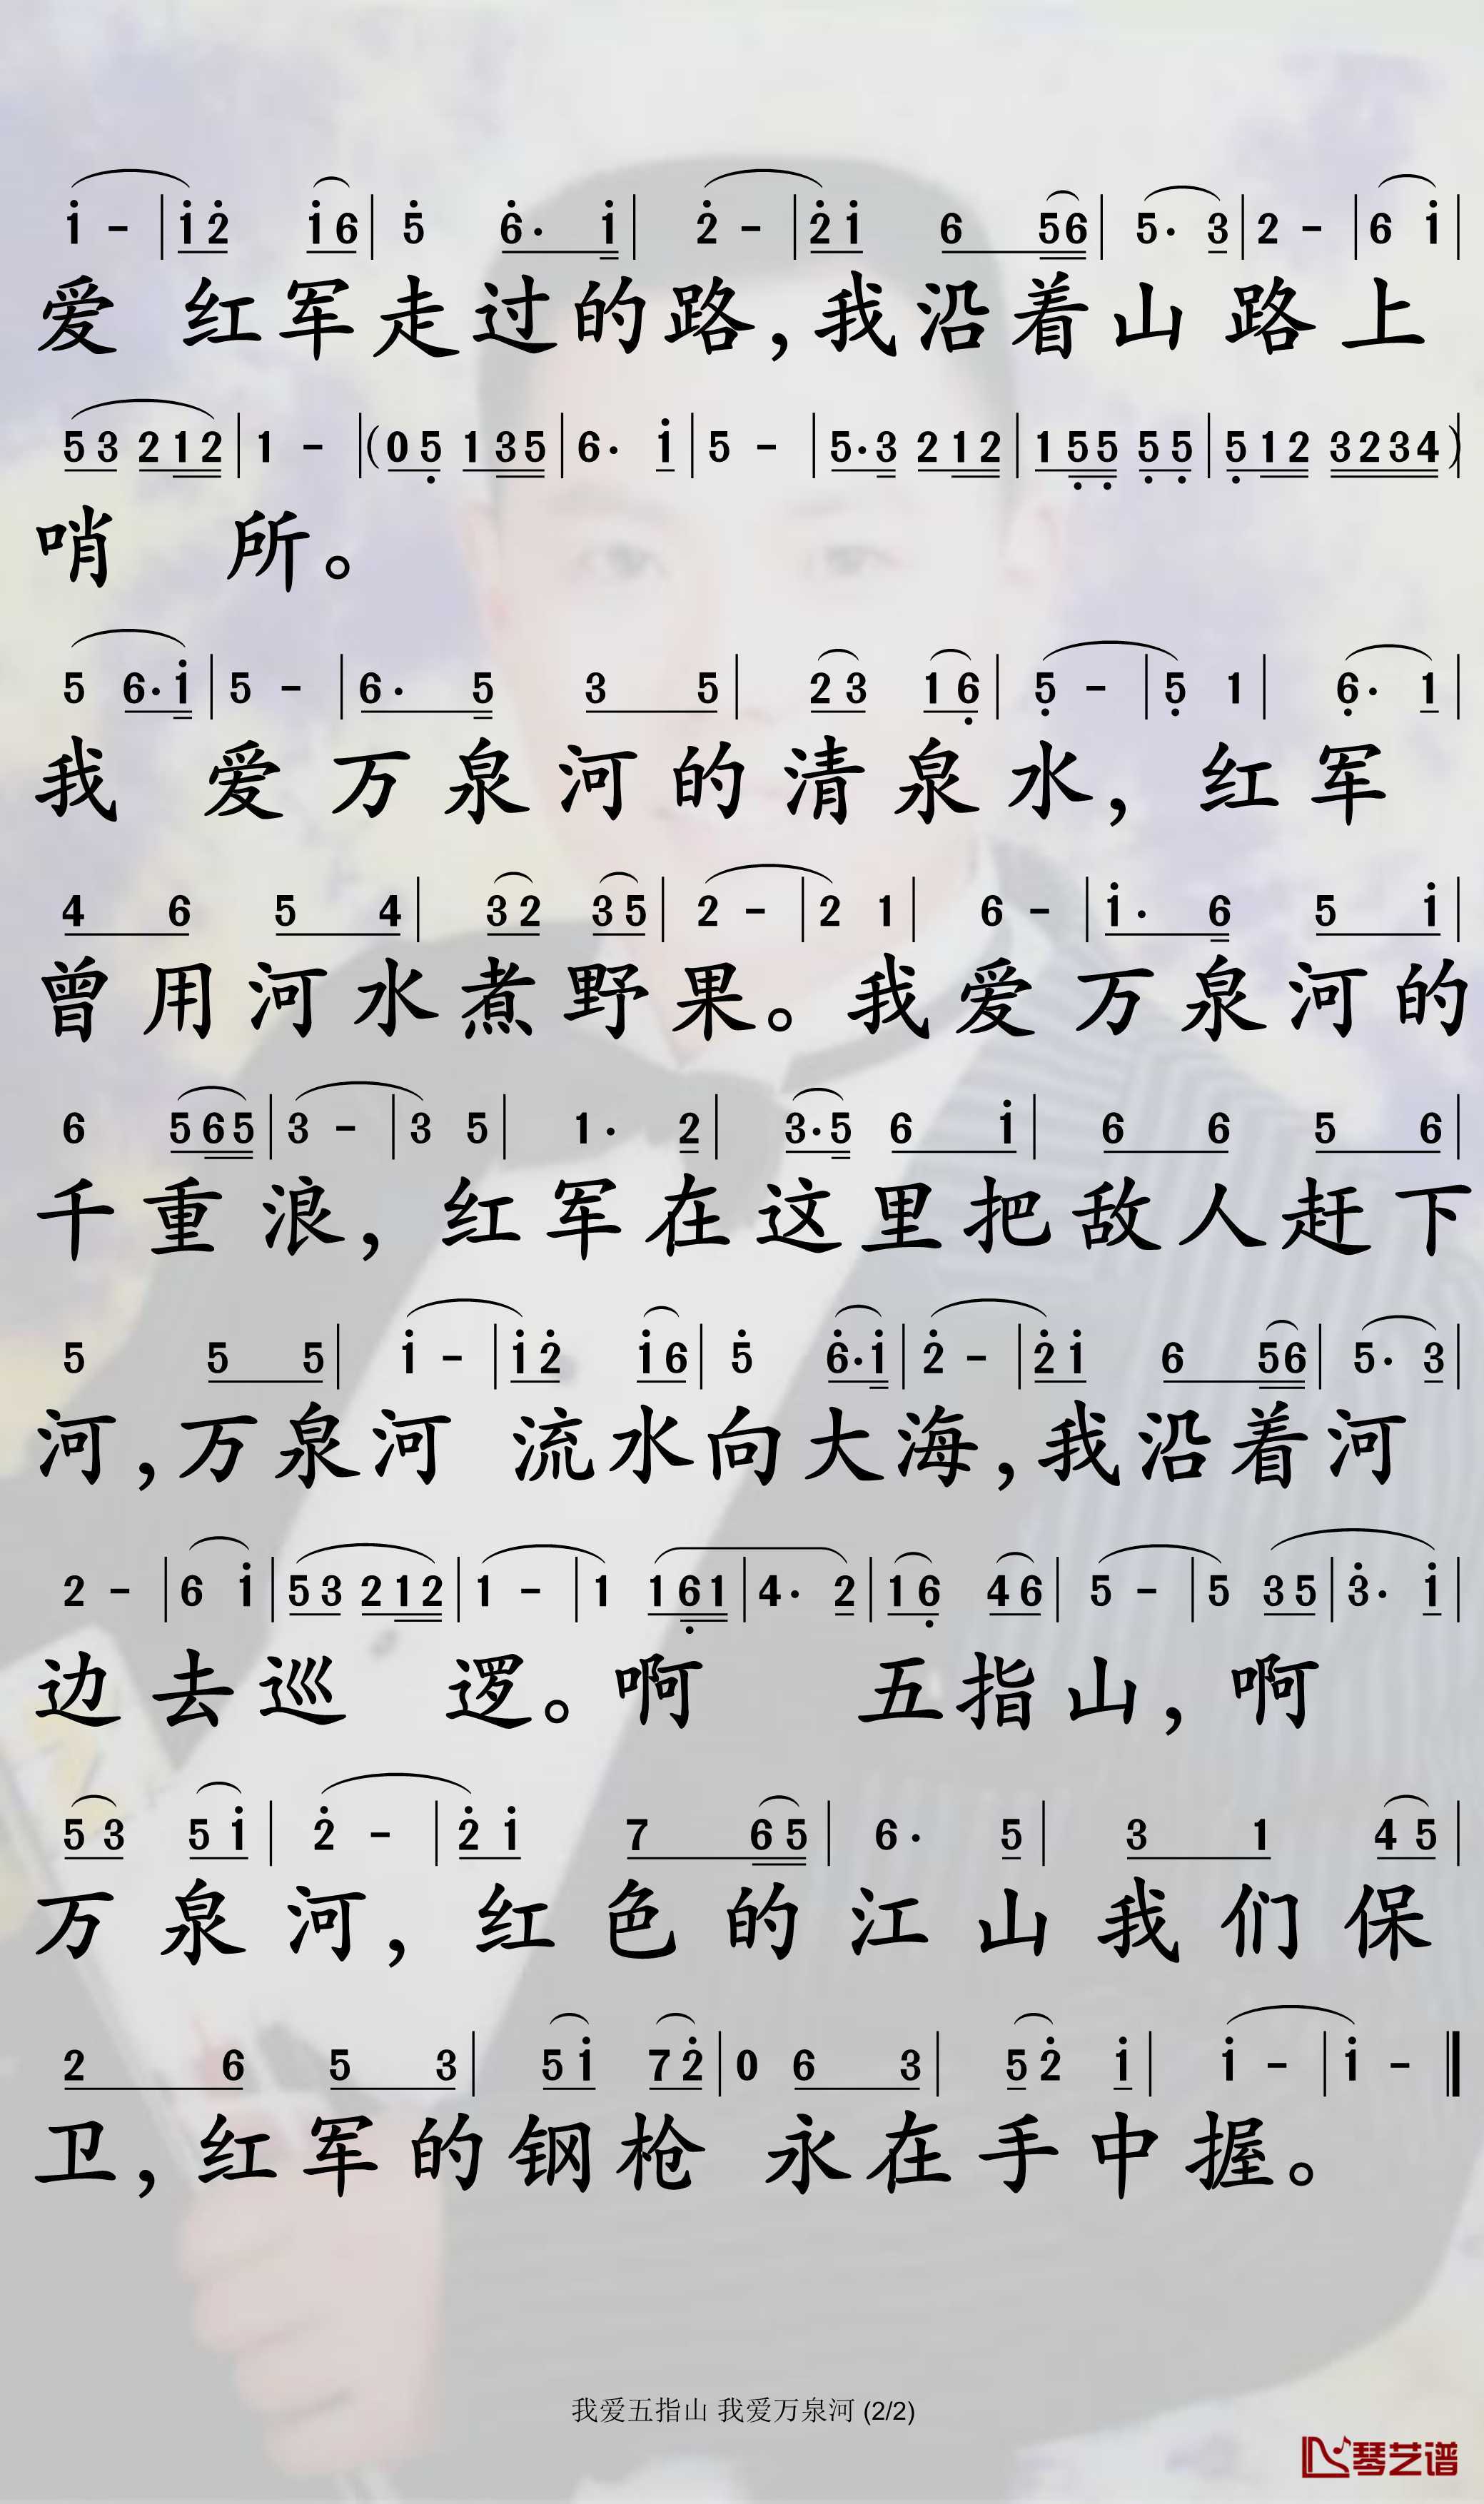 i - | i 2 i 6 | 5 6 · i | 2 - | 2 i 6 5 6 | 5 · 3 | 2 - | 6 i |
爱 红军走过的路,我沿着山路上
5 3 2 1 2 | 1 - | ( 0 5 1 3 5 | 6 · i | 5 - | 5 · 3 2 1 2 | 1 5 5 5 5 | 5 1 2 3 2 3 4 ) |
哨 所。
5 6 · i | 5 - | 6 · 5 3 5 | 2 3 1 6 | 5 - | 5 1 | 6 · 1 |
我 爱万泉河的清泉水,红军
4 6 5 4 | 3 2 3 5 | 2 - | 2 1 | 6 - | i · 6 5 i |
曾用河水煮野果。我爱万泉河的
6 5 6 5 | 3 - | 3 5 | 1 · 2 | 3 · 5 6 i | 6 6 5 6 |
千重浪,红军在这里把敌人赶下
5 5 5 | i - | i 2 i 6 | 5 6 · i | 2 - | 2 i 6 5 6 | 5 · 3 |
河,万泉河 流水向大海,我沿着河
2 - | 6 i | 5 3 2 1 2 | 1 - | 1 1 6 1 | 4 · 2 | 1 6 4 6 | 5 - | 5 3 5 | 3 · i |
边去巡 逻。啊 五指山,啊
5 3 5 i | 2 - | 2 i 7 6 5 | 6 · 5 | 3 1 4 5 |
万泉河,红色的江山我们保
2 6 5 3 | 5 i 7 2 | 0 6 3 | 5 2 i | i - | i - ‖
卫,红军的钢枪 永在手中握。
我爱五指山 我爱万泉河 (2/2)
琴艺谱